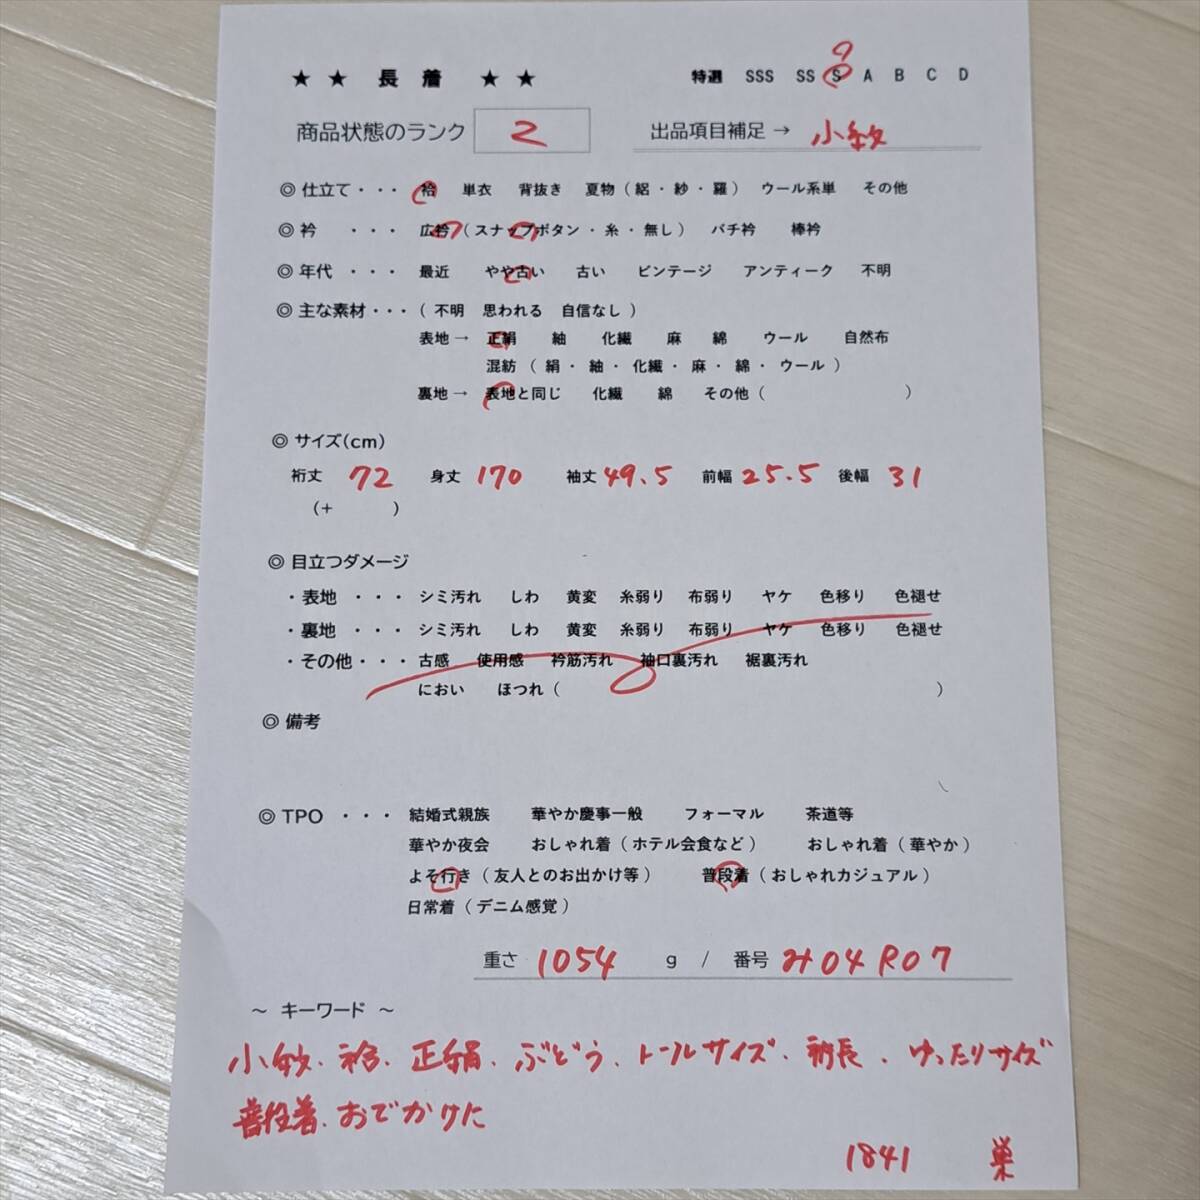 ★ ★ 長 着 ★ ★ 特選 SSS SS S A B C D
商品状態のランク 2 出品項目補足 → 小紋
◎ 仕立て・・・ 袷 単衣 背抜き 夏物（絽・紗・羅） ウール系単 その他
◎ 衿 ・・・ 広衿（スナップボタン・糸・無し） バチ衿 棒衿
◎ 年代 ・・・ 最近 やや古い 古い ビンテージ アンティーク 不明
◎ 主な素材・・・（ 不明 思われる 自信なし ）
表地→ 正絹 紬 化繊 麻 綿 ウール 自然布
混紡（ 絹・紬・化繊・麻・綿・ウール ）
裏地→ 表地と同じ 化繊 綿 その他（ ）
◎ サイズ(cm)
裄丈 72 身丈 170 袖丈 49.5 前幅 25.5 後幅 31
（+ ）
◎ 目立つダメージ
・表地 ・・・ シミ汚れ しわ 黄変 糸弱り 布弱り ヤケ 色移り 色褪せ
・裏地 ・・・ シミ汚れ しわ 黄変 糸弱り 布弱り ヤケ 色移り 色褪せ
・その他・・・ 古感 使用感 衿筋汚れ 袖口裏汚れ 裾裏汚れ
におい ほつれ（ ）
◎ 備考
◎ TPO ・・・ 結婚式親族 華やか慶事一般 フォーマル 茶道等
華やか夜会 おしゃれ着（ホテル会食など） おしゃれ着（華やか）
よそ行き（友人とのお出かけ等） 普段着（おしゃれカジュアル）
日常着（デニム感覚）
重さ 1054 g / 番号 み04R07
～ キーワード ～
小紋、袷、正絹、ぶどう、トールサイズ、裄長、ゆったりサイズ
普段着、おでかけに
1841 巣